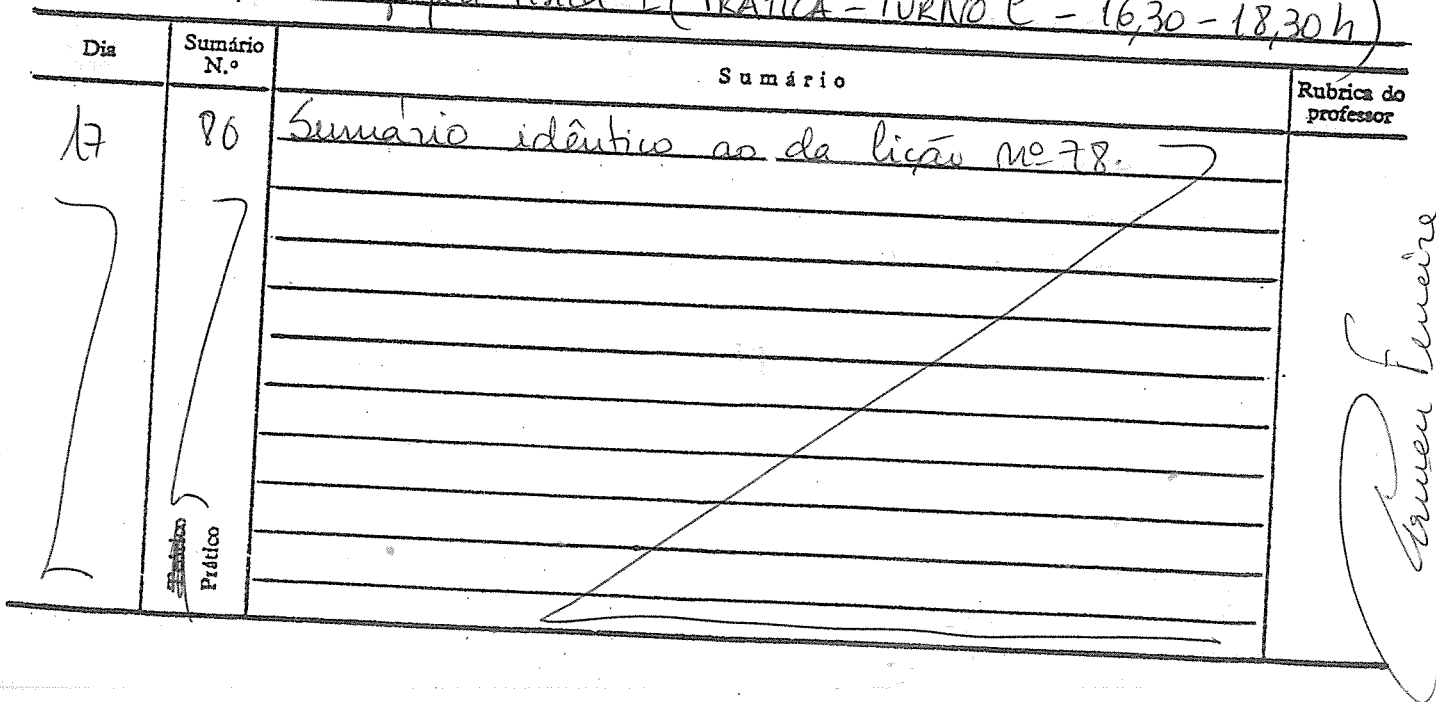 Física I (PRÁTICA - TURNO C - 16,30 - 18,30 h)
Dia
Sumário N.º
Sumário
Rubrica do professor
17
80
Sumário idêntico ao da lição nº 78.
Prático
Ferreira